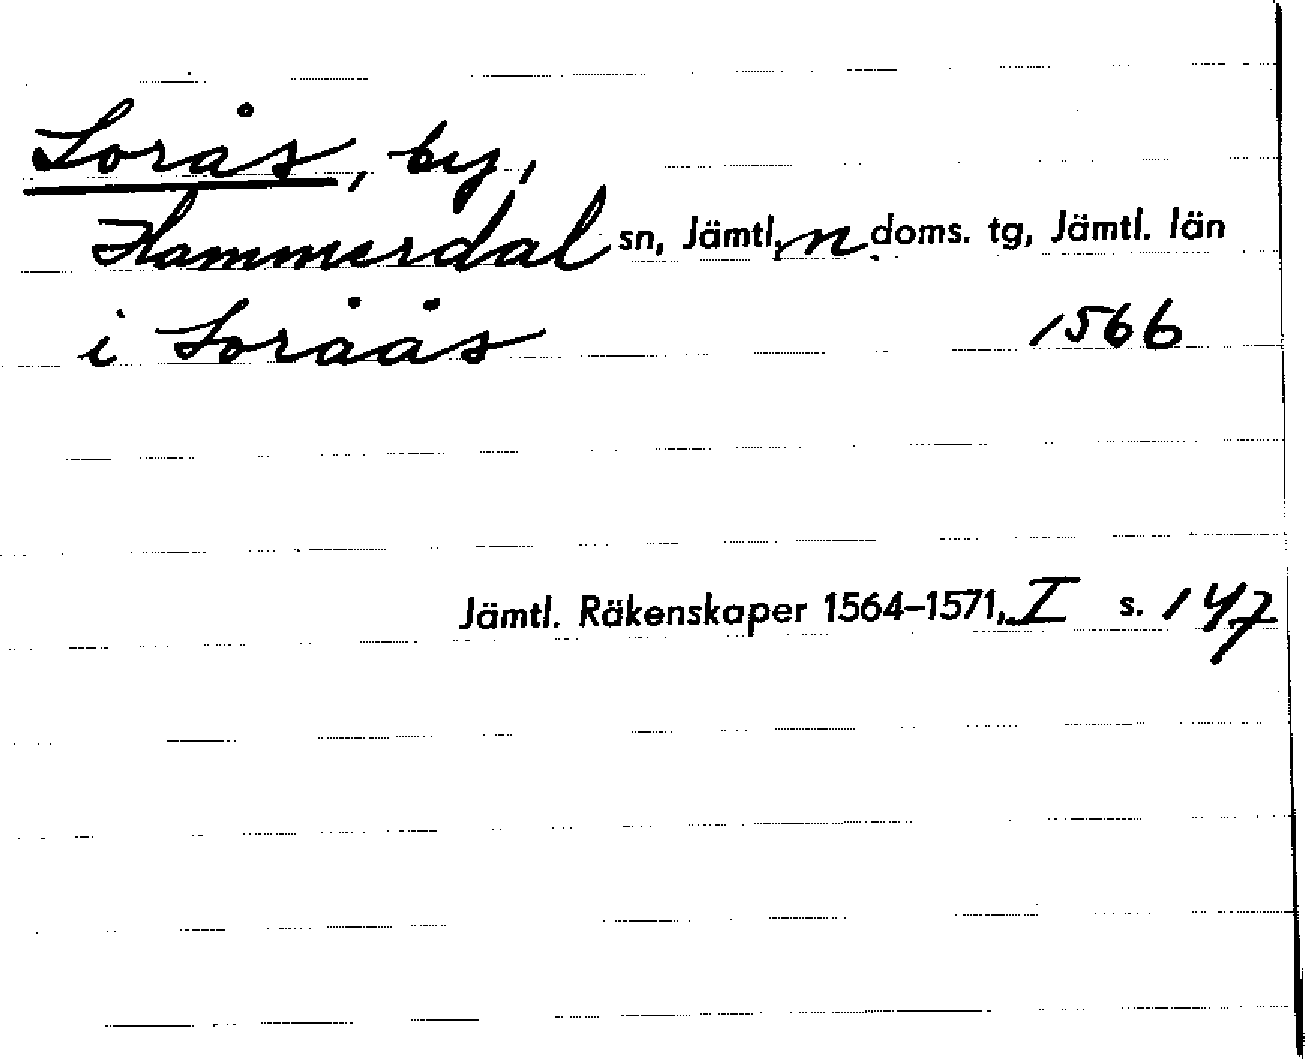 Sorås, by,
Hammerdal sn, Jämtl, n doms. tg, Jämtl. län
i Soråås 1566
Jämtl. Räkenskaper 1564–1571, I s. 147